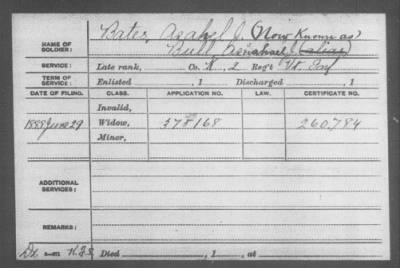 Bates, Asahel J. (Now Known as)
NAME OF SOLDIER: Bull, (alias)
SERVICE: Late rank, Co. K, 2 Reg't Vt. Inf
TERM OF SERVICE: Enlisted , 1 Discharged , 1
DATE OF FILING. CLASS. APPLICATION NO. LAW. CERTIFICATE NO.
Invalid,
1888 June 29 Widow, 378168 260784
Minor,
ADDITIONAL SERVICES:
REMARKS:
Died , 1 , at